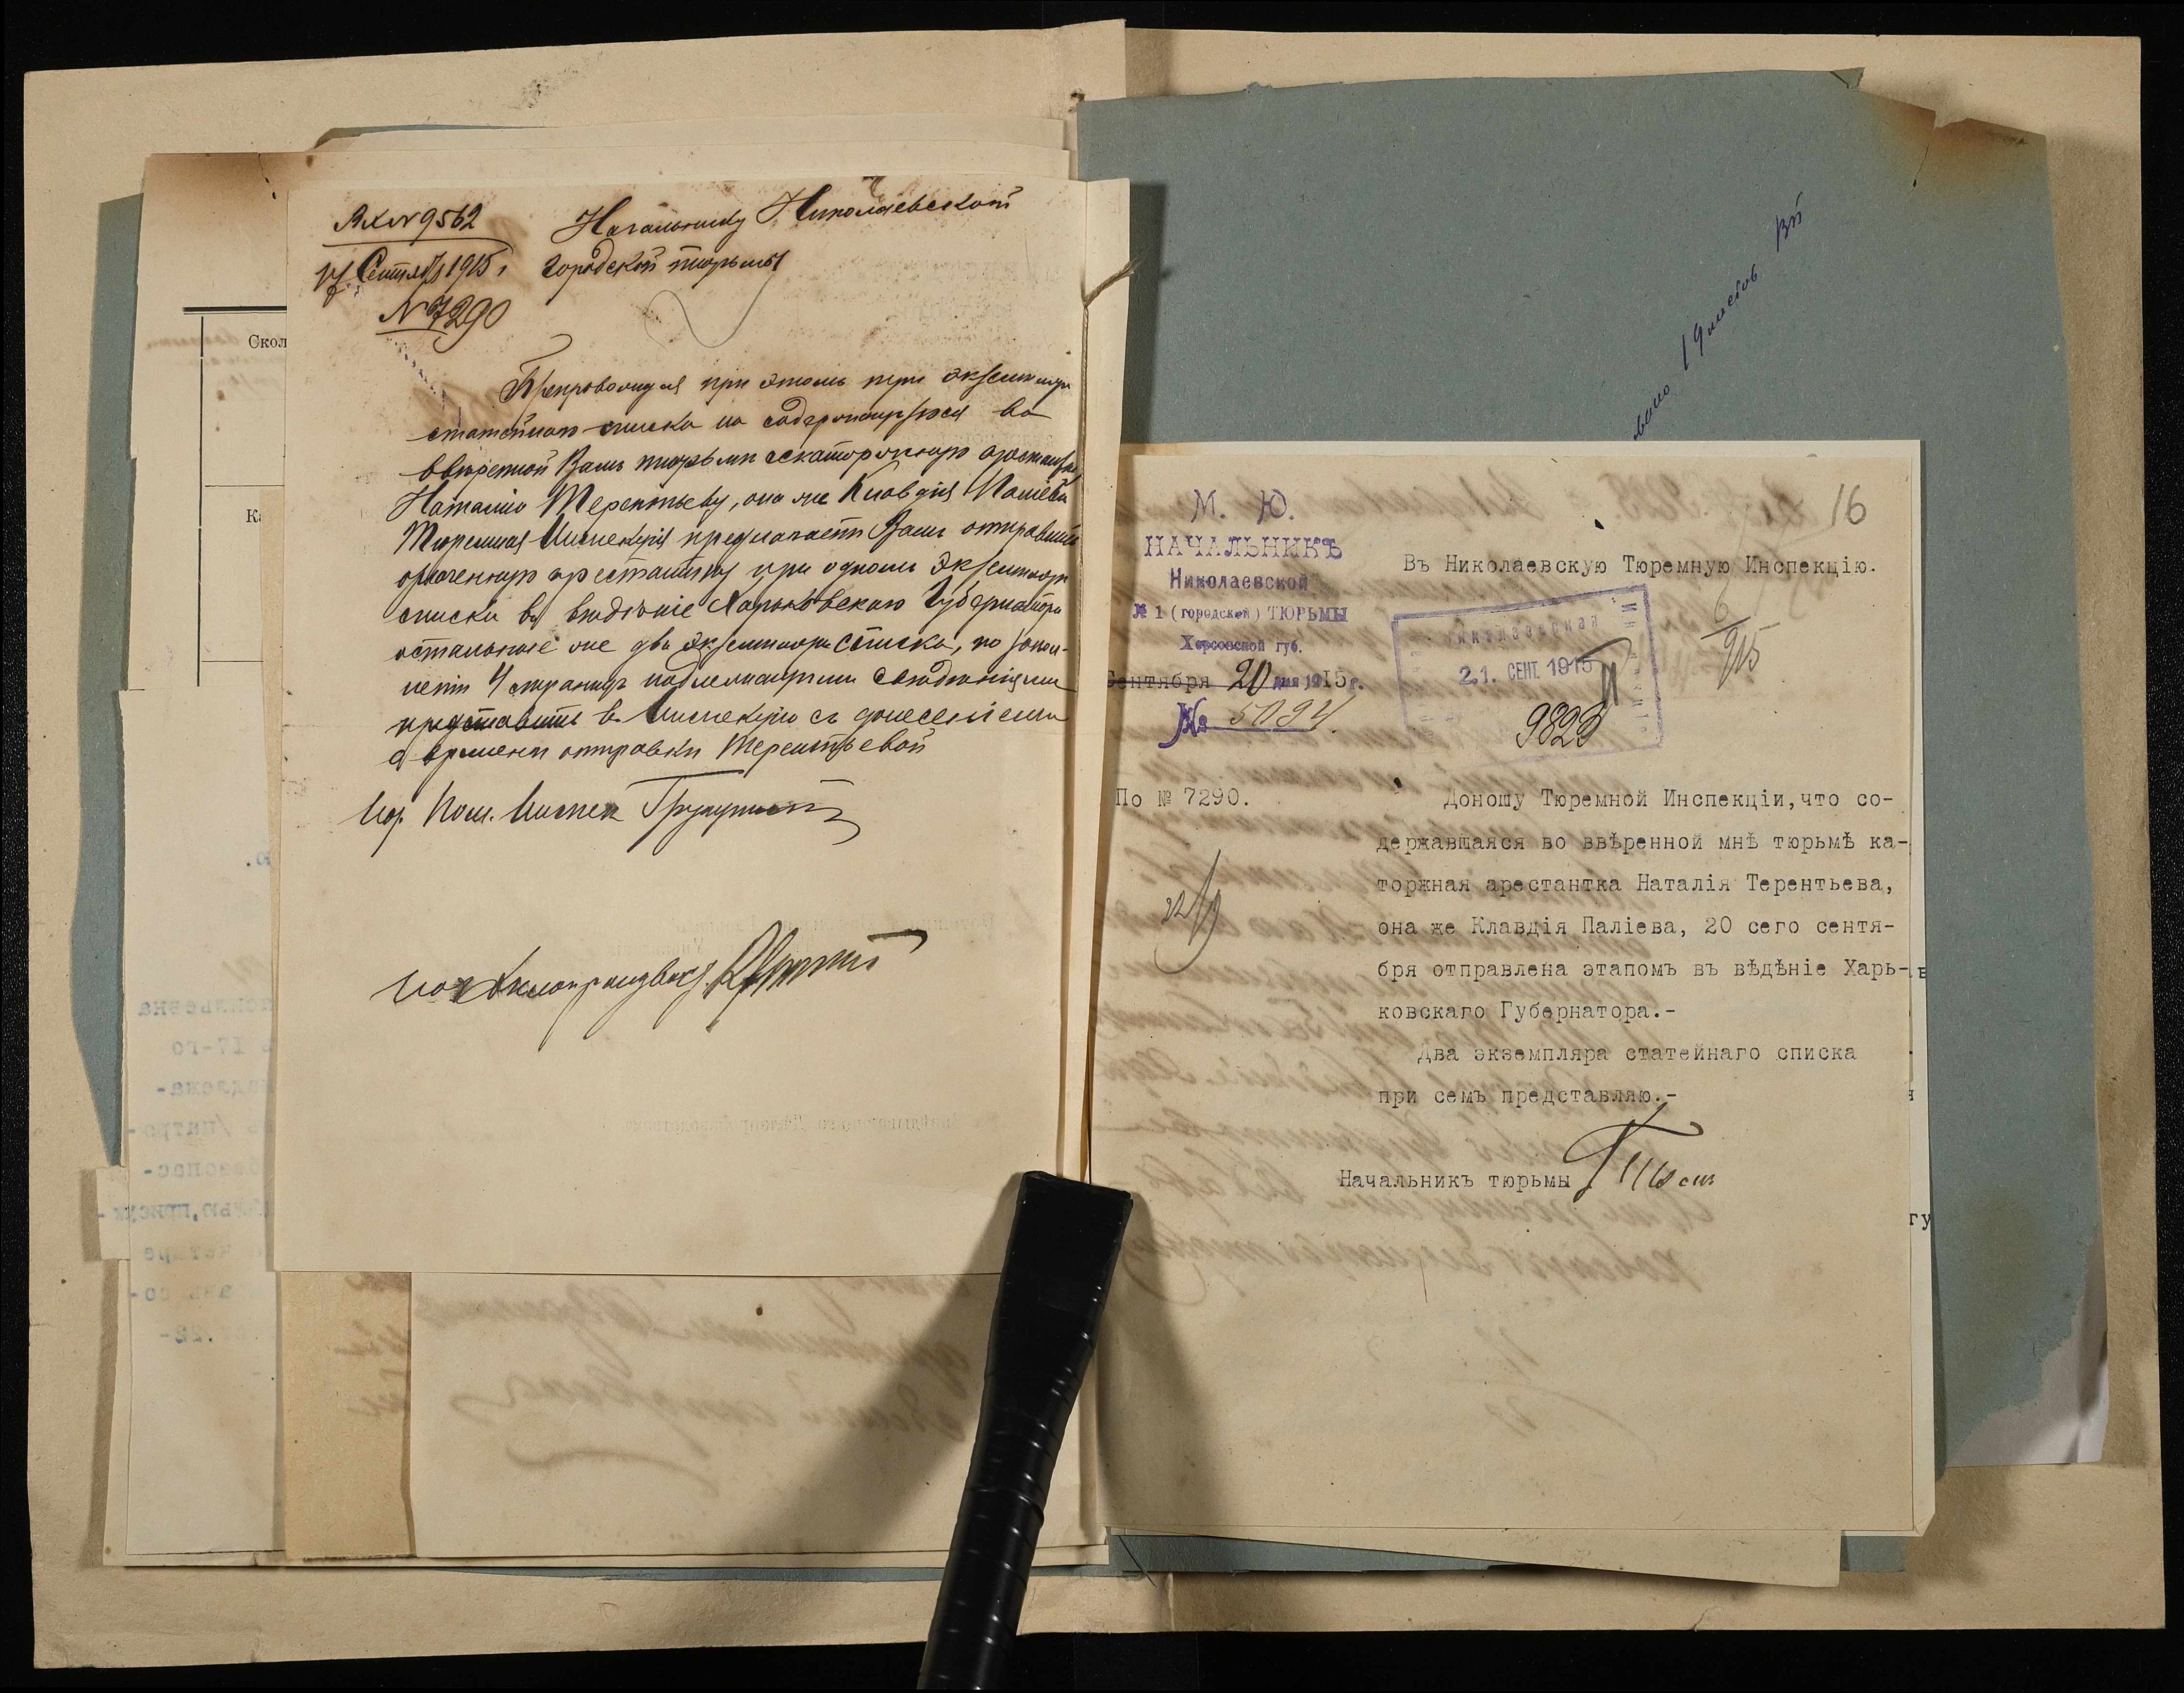 Вх № 9562
17 Сентября 1915 г.
№ 7290
Начальнику Николаевской
городской тюрьмы
Препровождая при этомъ три экземпляра
статейнаго списка на содержащуюся во
ввѣренной Вамъ тюрьмѣ ссыльнокаторжную арестантку
Наталію Терентьеву, она же Клавдія Паліева
Тюремная Инспекція предлагаетъ Вамъ отправить
означенную арестантку при одномъ экземпляре
списка въ вѣдѣніе Харьковскаго Губернатора
остальные же два экземпляра списка, по запол-
неніи 4 страницъ надлежащими свѣдѣніями
представить в Инспекцію съ донесеніемъ
о времени отправки Терентьевой
Пом. Инспек
Скол
Ка
16
М. Ю.
НАЧАЛЬНИКЪ
Николаевской
№ 1 (городской) ТЮРЬМЫ
Херсонской губ.
Сентября 20 дня 1915 г.
№ 5094
Въ Николаевскую Тюремную Инспекцію.
НИКОЛАЕВСКАЯ
21. СЕНТ 1915
9823
6/915
По № 7290.
Доношу Тюремной Инспекціи, что со-
державшаяся во ввѣренной мнѣ тюрьмѣ ка-
торжная арестантка Наталія Терентьева,
она же Клавдія Паліева, 20 сего сентя-
бря отправлена этапомъ въ вѣдѣніе Харь-
ковскаго Губернатора.-
Два экземпляра статейнаго списка
при семъ представляю.-
Начальникъ тюрьмы
22/9
19 листов